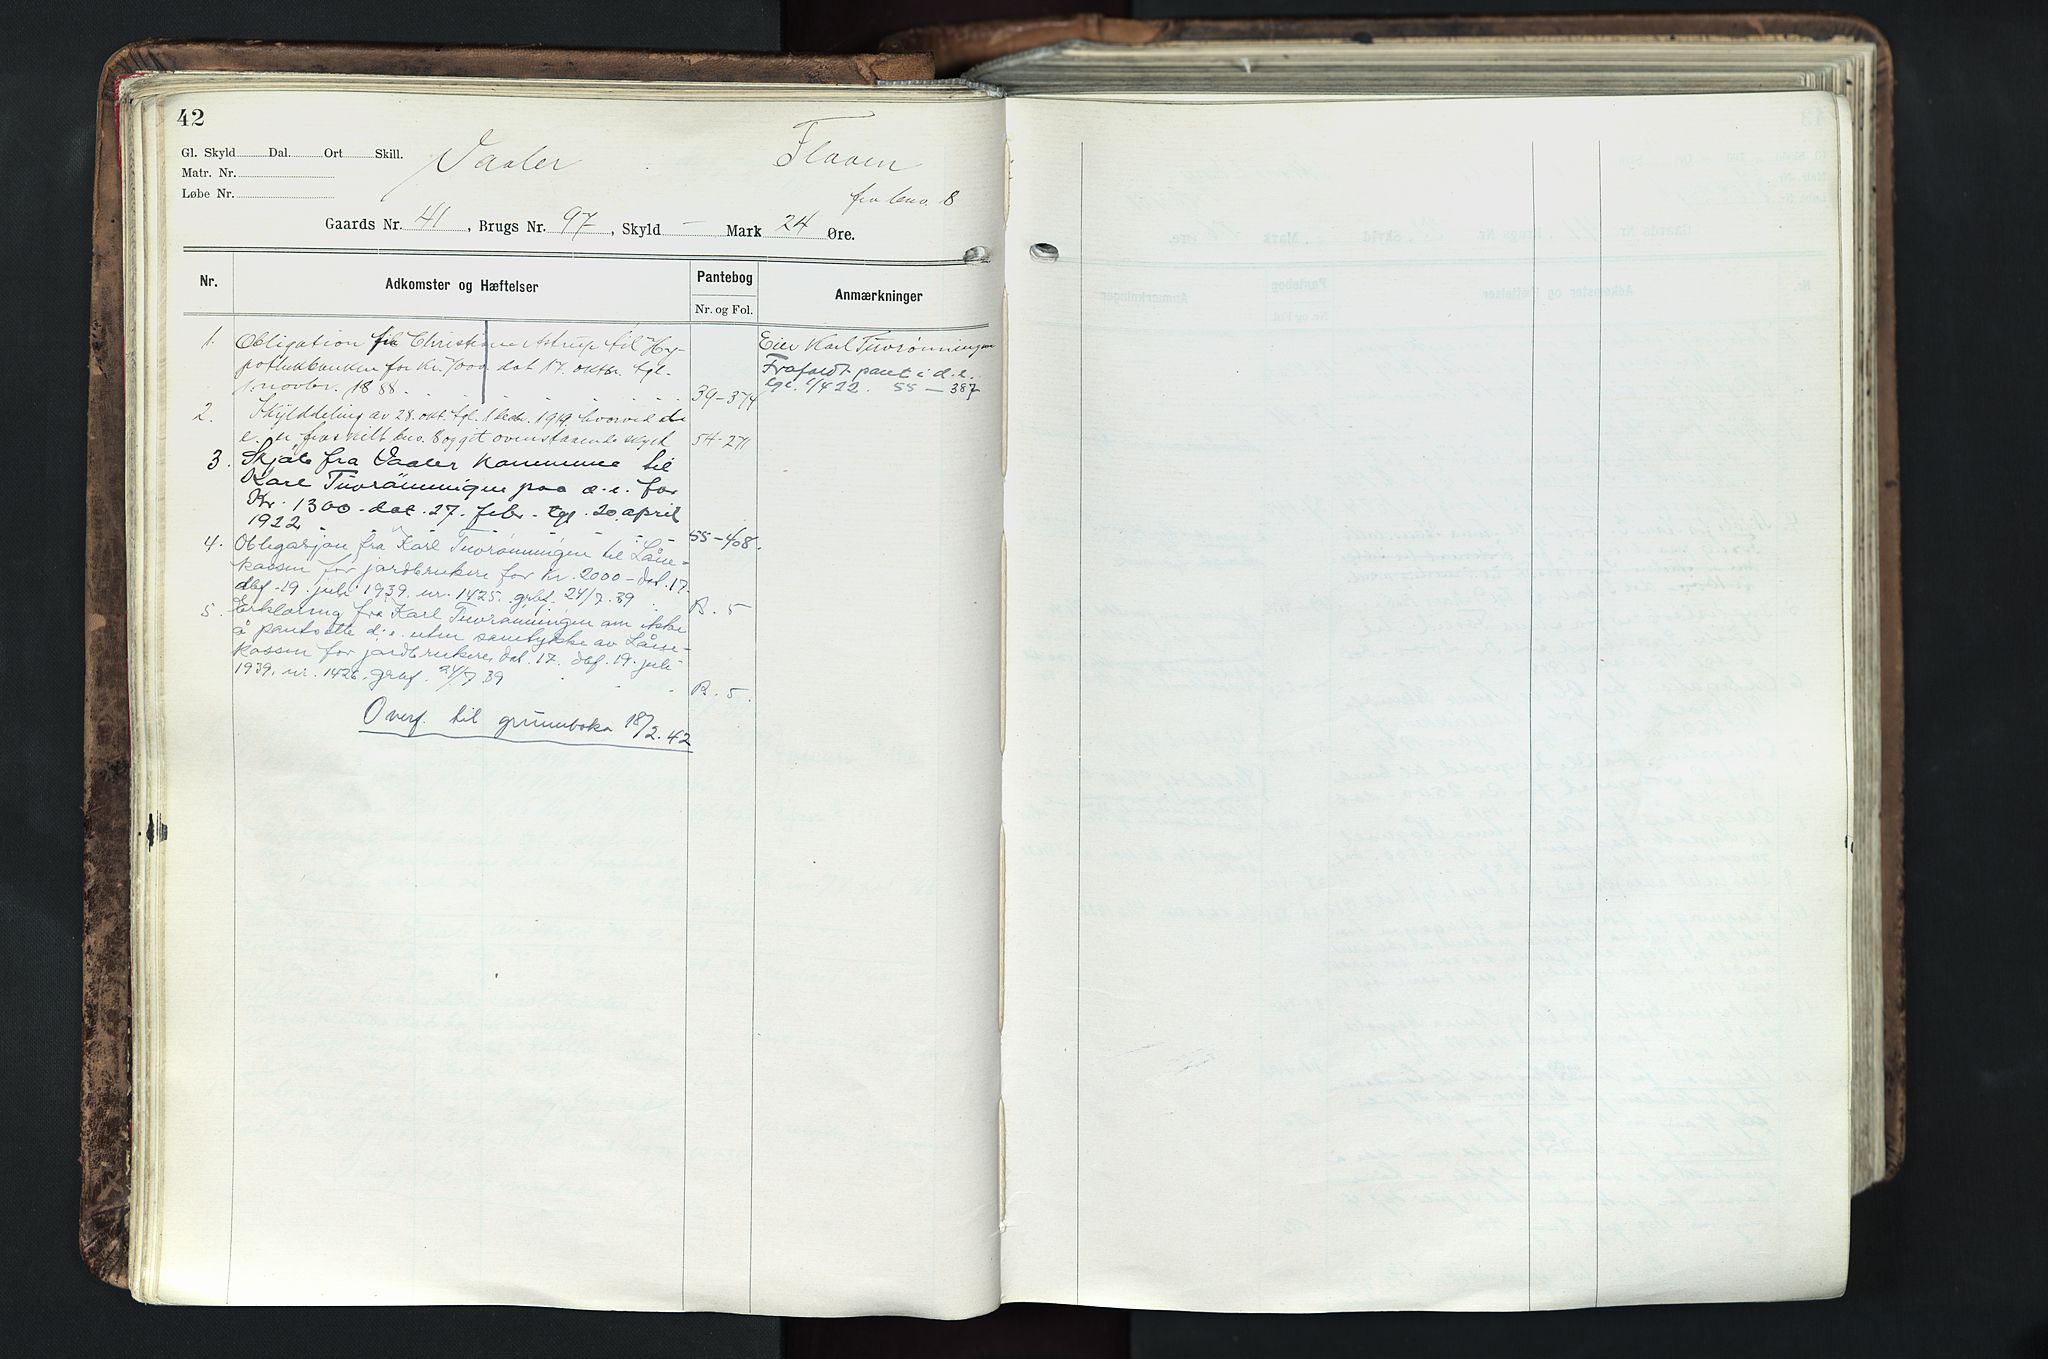 42
Gl. Skyld Dal. Ort Skill.
Matr. Nr.
Løbe Nr.
Vaaler
Flaaen
fra bno. 8
Gaards Nr. 41, Brugs Nr. 97, Skyld — Mark 24 Øre.
Nr.
Adkomster og Hæftelser
Pantebog
Nr. og Fol.
Anmærkninger
1. Obligation fra Christian Astrup til Hy-
potekbanken for Kr. 7000 dat 17. oktbr. tgl.
1 novbr. 1888. 39-374
Eier Karl Tuvrønningen
Frafaldt pant i d. e.
tgl. 55 — 387
2. Skylddeling av 28. okt. tgl. 1919, hvorved d.
e. er fraskilt bno. 8 og git ovenstaaende skyld 54-271
3. Skjøte fra Vaaler kommune til
Karl Tuvrönningen paa d. e. for
Kr. 1300 - dat. 27. febr. tgl. 20. april
1922 55-408.
4. Obligasjon fra Karl Tuvrønningen til Låne-
kassen for jordbrukere for kr. 2000 - dat. 17.
dbf. 19. juli 1939. nr. 1425. grbf. 24/7.39 B. 5
5. Erklæring fra Karl Tuvrønningen om ikke
å pantsette d. e. uten samtykke av Låne-
kassen for jordbrukere, dat. 17. dbf. 19. juli
1939. nr. 1426. grbf. 24/7 39 B. 5
Overf. til grunnboka 18/2. 42